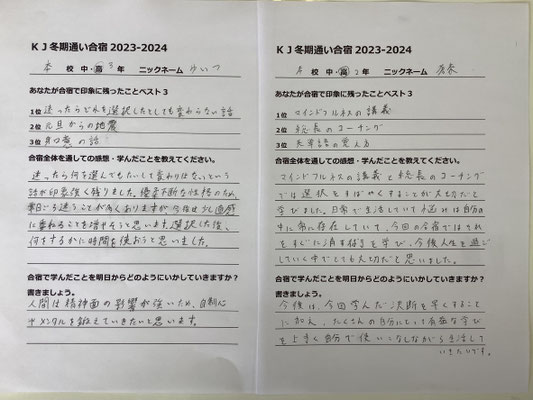 KJ冬期通い合宿 2023-2024
本 校 中・高 3 年 ニックネーム ゆいつ
あなたが合宿で印象に残ったことベスト3
1位 迷ったらどれを選択したとしても変わらない話
2位 元旦からの地震
3位 の話
合宿全体を通しての感想・学んだことを教えてください。
迷ったら何を選んでもたいして変わりはないという
話が印象強く残りました。優柔不断な性格のため、
日ごろ迷うことが多くありますが今後は少し直感
に委ねることを増やそうと思います。選択した後、
何をするかに時間を使おうと思いました。
合宿で学んだことを明日からどのようにいかしていきますか？
書きましょう。
人間は精神面の影響が強いため、自制心
やメンタルを鍛えていきたいと思います。
KJ冬期通い合宿 2023-2024
校 中・高 2 年 ニックネーム
あなたが合宿で印象に残ったことベスト3
1位 マインドフルネスの講義
2位 校長のコーチング
3位 英単語の覚え方
合宿全体を通しての感想・学んだことを教えてください。
マインドフルネスの講義と校長のコーチング
では選択をすばやくすることが大切だと
学びました。日常で生活していて悩みは自分の
中に常に存在していて、今回の合宿ではそれ
をすぐに消す招きを学び、今後人生を過ご
していく中でとても大切だと思いました。
合宿で学んだことを明日からどのようにいかしていきますか？
書きましょう。
今後は、今回学んだ決断を早くすること
に加え、たくさんの自分にとって有益な学び
を上手く自分で使いこなしながら生活して
いきたいです。